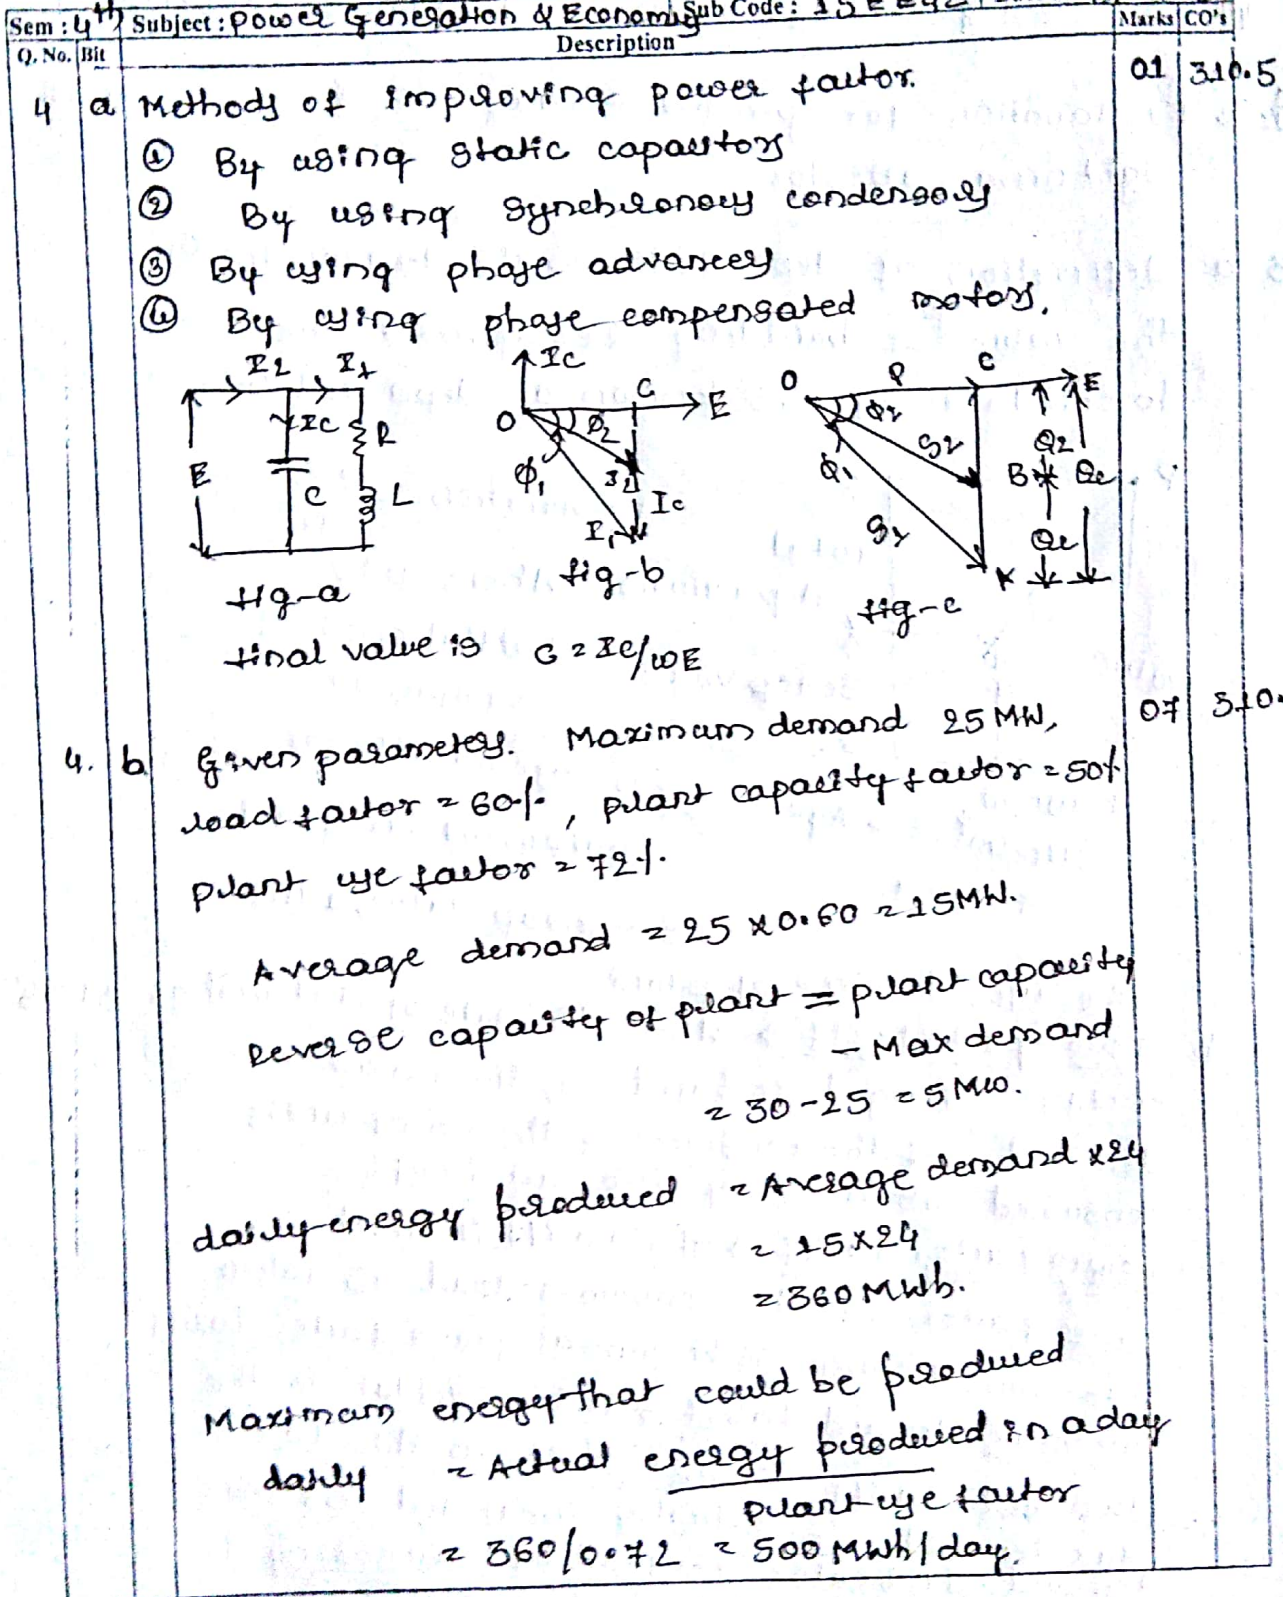 Sem : 4th Subject : power Generation & Economics Sub Code :
Marks CO's
Q. No. Bit Description
4 a Methods of improving power factor. 01 310.5
① By using static capacitors
② By using synchronous condensors
③ By using phase advancers
④ By using phase compensated motors.
I2 I1
IC
R
E
C
L
fig-a
IC
O C E
φ2
φ1
I2
IC
I1
fig-b
O P C E
φ2
φ1
S2
S1
Q2
B
QC
K
fig-c
final value is C = IC/ωE
4. b Given parameters. Maximum demand 25 MW, 07 310.
load factor = 60%, plant capacity factor = 50%
plant use factor = 72%.
Average demand = 25 x 0.60 = 15MW.
Reverse capacity of plant = plant capacity
- Max demand
= 30 - 25 = 5 MW.
daily energy produced = Average demand x24
= 15x24
= 360 MWh.
Maximum energy that could be produced
daily = Actual energy produced in a day
plant use factor
= 360/0.72 = 500 MWh/day.